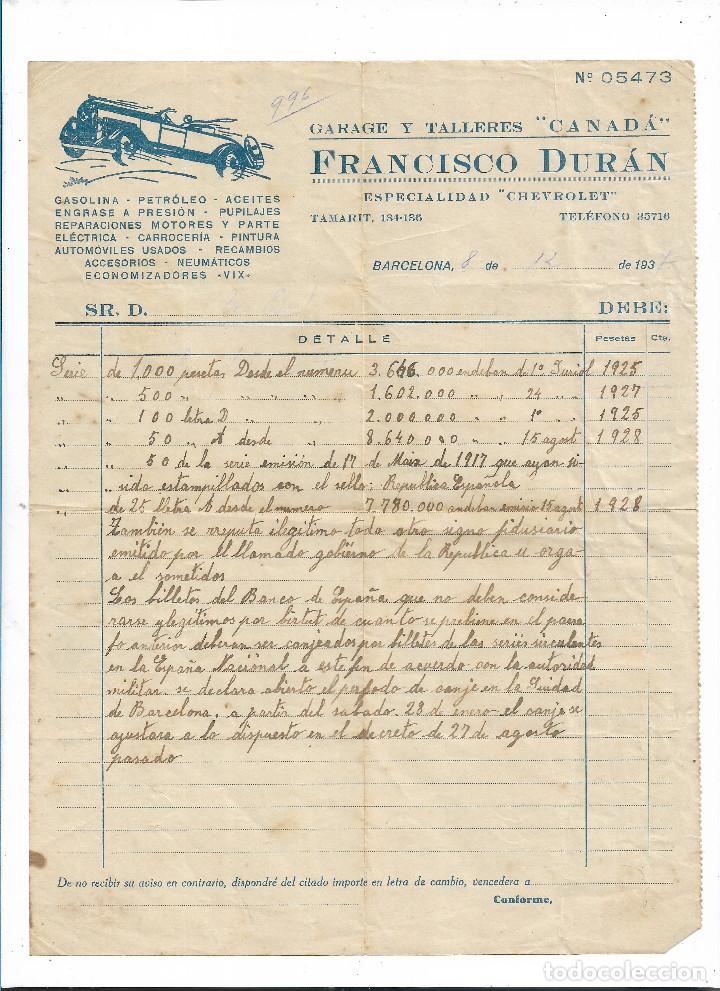 Nº 05473
996
GARAGE Y TALLERES "CANADÁ"
FRANCISCO DURÁN
ESPECIALIDAD "CHEVROLET"
TAMARIT, 134-136 TELÉFONO 35716
GASOLINA - PETRÓLEO - ACEITES
ENGRASE A PRESIÓN - PUPILAJES
REPARACIONES MOTORES Y PARTE
ELÉCTRICA - CARROCERÍA - PINTURA
AUTOMÓVILES USADOS - RECAMBIOS
ACCESORIOS - NEUMÁTICOS
ECONOMIZADORES «VIX»
BARCELONA, 8 de 12 de 193
SR. D. DEBE:
DETALLE Pesetas Cts.
Serie de 1,000 pesetas Desde el numeru 3.646.000 endiban d 1º Juriol 1925
" " 500 " " " " " 1.602.000 " " 24 " " 1927
" " 100 letra D " " 2.000.000 " " 1º " 1925
" " 50 " A desde " 8.640.000 " " 15 agost 1928
" " 50 de la serie emisión de 17 de Maix de 1917 que ayan si-
" sida estampillados con el sello: Republica Española
" de 25 lletra A desde el numero 7.780.000 andiban emisio 15 agost 1928
También se rreputa ilegitimo todo otro signo fidusiario
emitido por El llamado gobiérno de la Republica u orga
a el sometidos
Los billetes del Banco de España que no deben conside-
rarse ylegitimos por birtut de cuanto se prebiene en el paera
fo anterin deberan ser canjeados por billetes de las series sirculantes
en la España Nacional a este fin de acuerdo con la autoridad
militar se declara abierto el período de canje en la Siudad
de Barcelona, a partir del sabado 28 de enero el canje se
ajustara a lo dispuesto en el decreto de 27 de agosto
pasado
De no recibir su aviso en contrario, dispondré del citado importe en letra de cambio, vencedera a
Conforme,
todocoleccion